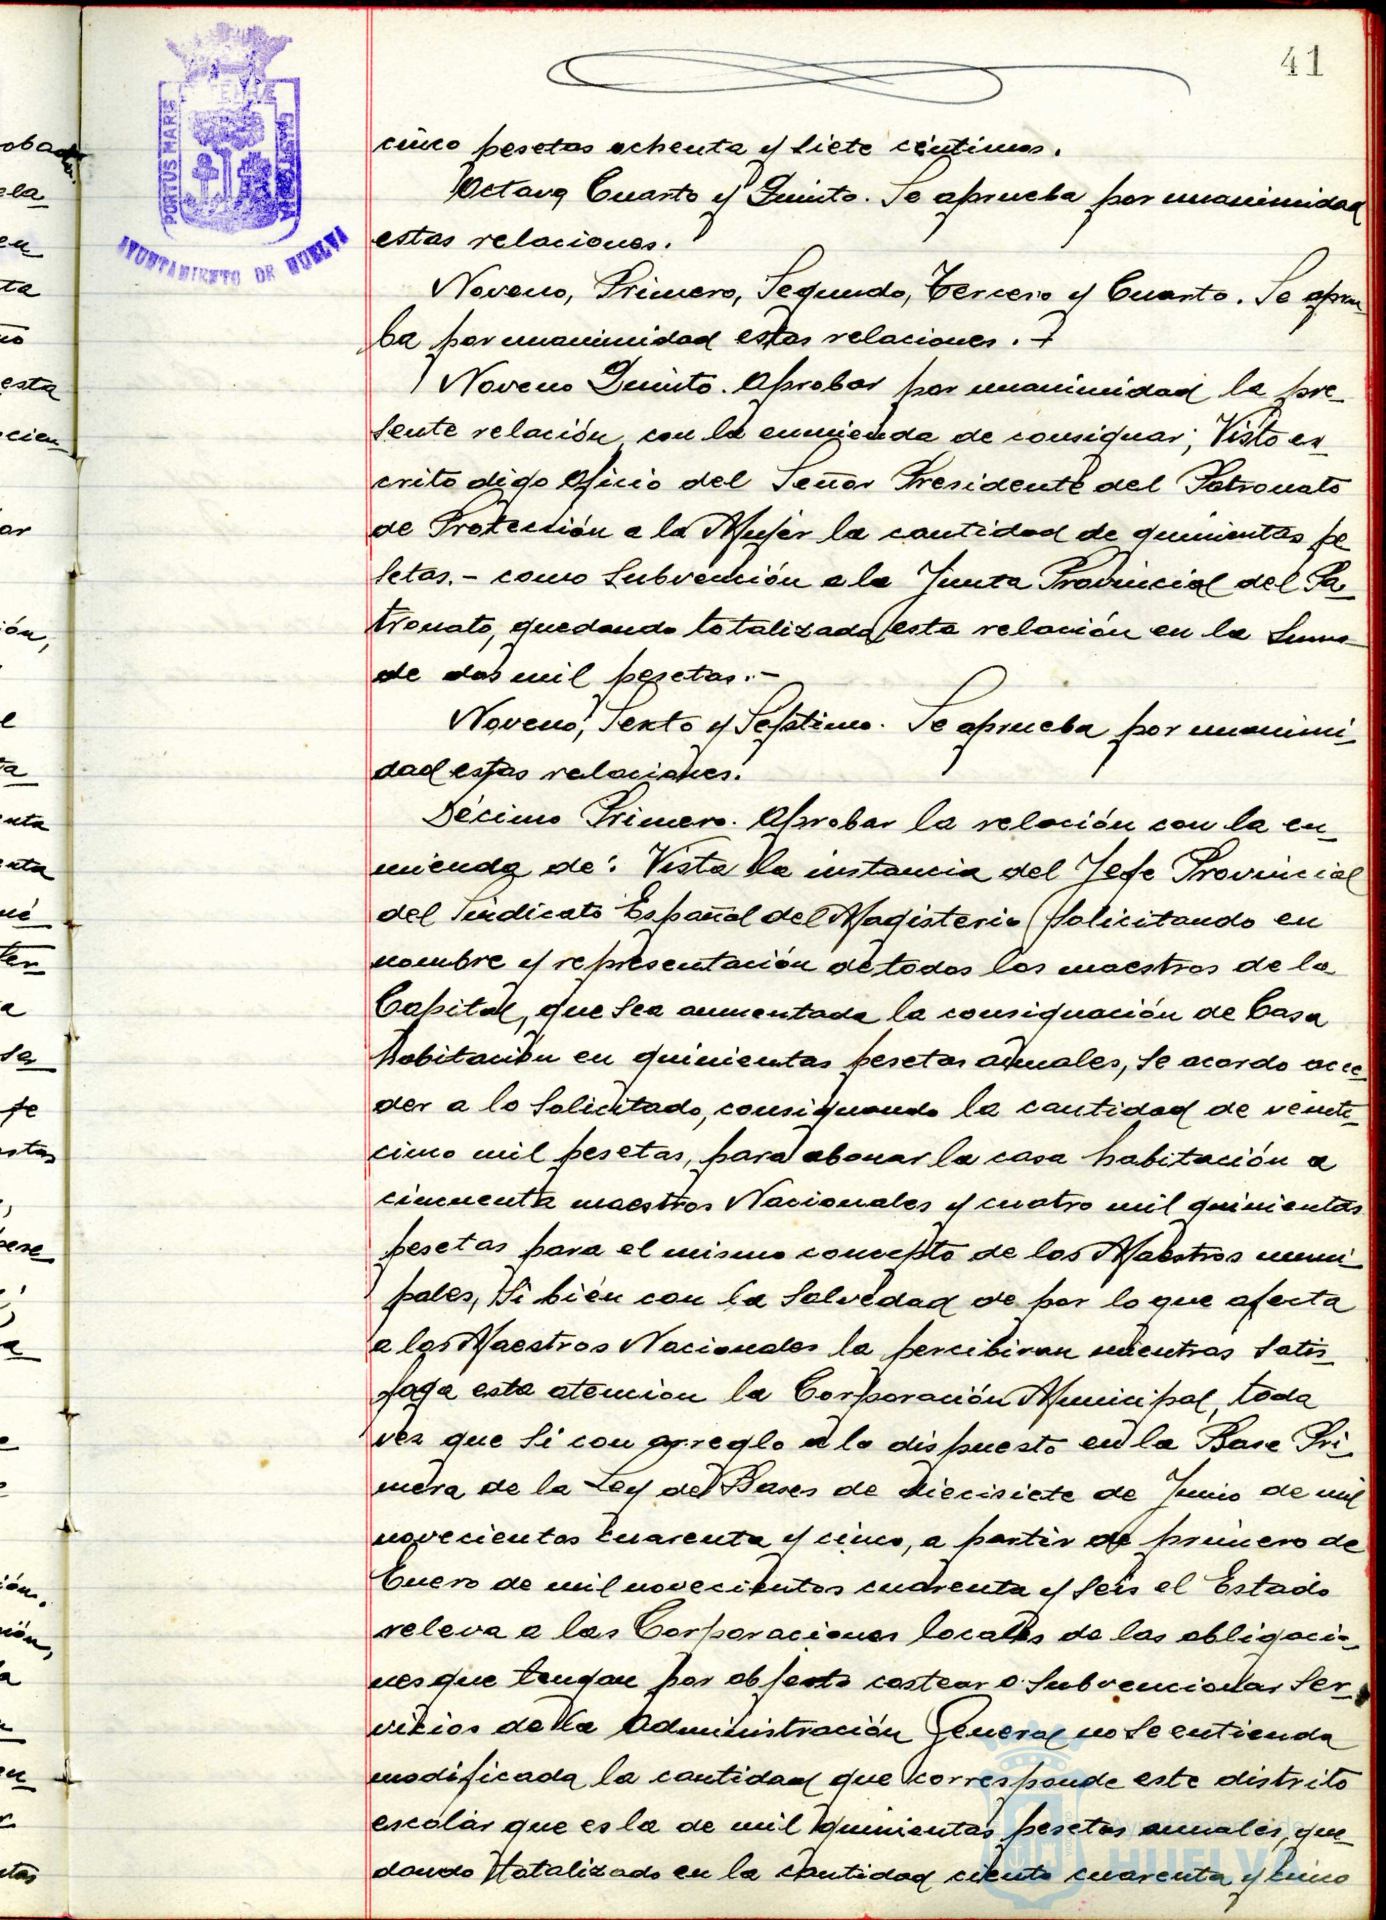 41
PORTUS MARIS
AYUNTAMIENTO DE HUELVA
cinco pesetas ochenta y siete céntimos.
Octavo, Cuarto y Quinto. Se aprueba por unanimidad
estas relaciones.
Noveno, Primero, Segundo, Tercero y Cuarto. Se aprue-
ba por unanimidad estas relaciones. -
Noveno Quinto. Aprobar por unanimidad la pre-
sente relación, con la enmienda de consignar; Visto es-
crito digo oficio del Señor Presidente del Patronato
de Protección a la Mujer la cantidad de quinientas pe
setas.- como subvención a la Junta Provincial del Pa-
tronato, quedando totalizada esta relación en la suma
de dos mil pesetas.-
Noveno, Sexto y Septimo. Se aprueba por unanimi-
dad estas relaciones.
Décimo Primero. Aprobar la relación con la en-
mienda de: Vista la instancia del Jefe Provincial
del Sindicato Español del Magisterio solicitando en
nombre y representación de todos los maestros de la
Capital, que sea aumentada la consignación de Casa
habitación en quinientas pesetas anuales, se acordo acce-
der a lo solicitado, consignando la cantidad de veinti-
cinco mil pesetas, para abonar la casa habitación a
cincuenta maestros Nacionales y cuatro mil quinientas
pesetas para el mismo concepto de los Maestros muni-
pales, si bién con la salvedad de por lo que afecta
a los Maestros Nacionales la percibiran mientras satis-
faga esta atencion la Corporación Municipal, toda
vez que si con arreglo a lo dispuesto en la Base Pri-
mera de la Ley de Bases de diecisiete de Junio de mil
novecientos cuarenta y cinco, a partir de primero de
Enero de mil novecientos cuarenta y seis el Estado
releva a las Corporaciones locales de las obligacio-
nes que tengan por objeto costear o subvencionar ser-
vicios de la Administración General no se entienda
modificada la cantidad que corresponde este distrito
escolar que es la de mil quinientas pesetas anuales, que-
dando totalizado en la cantidad ciento cuarenta y cinco
HUELVA